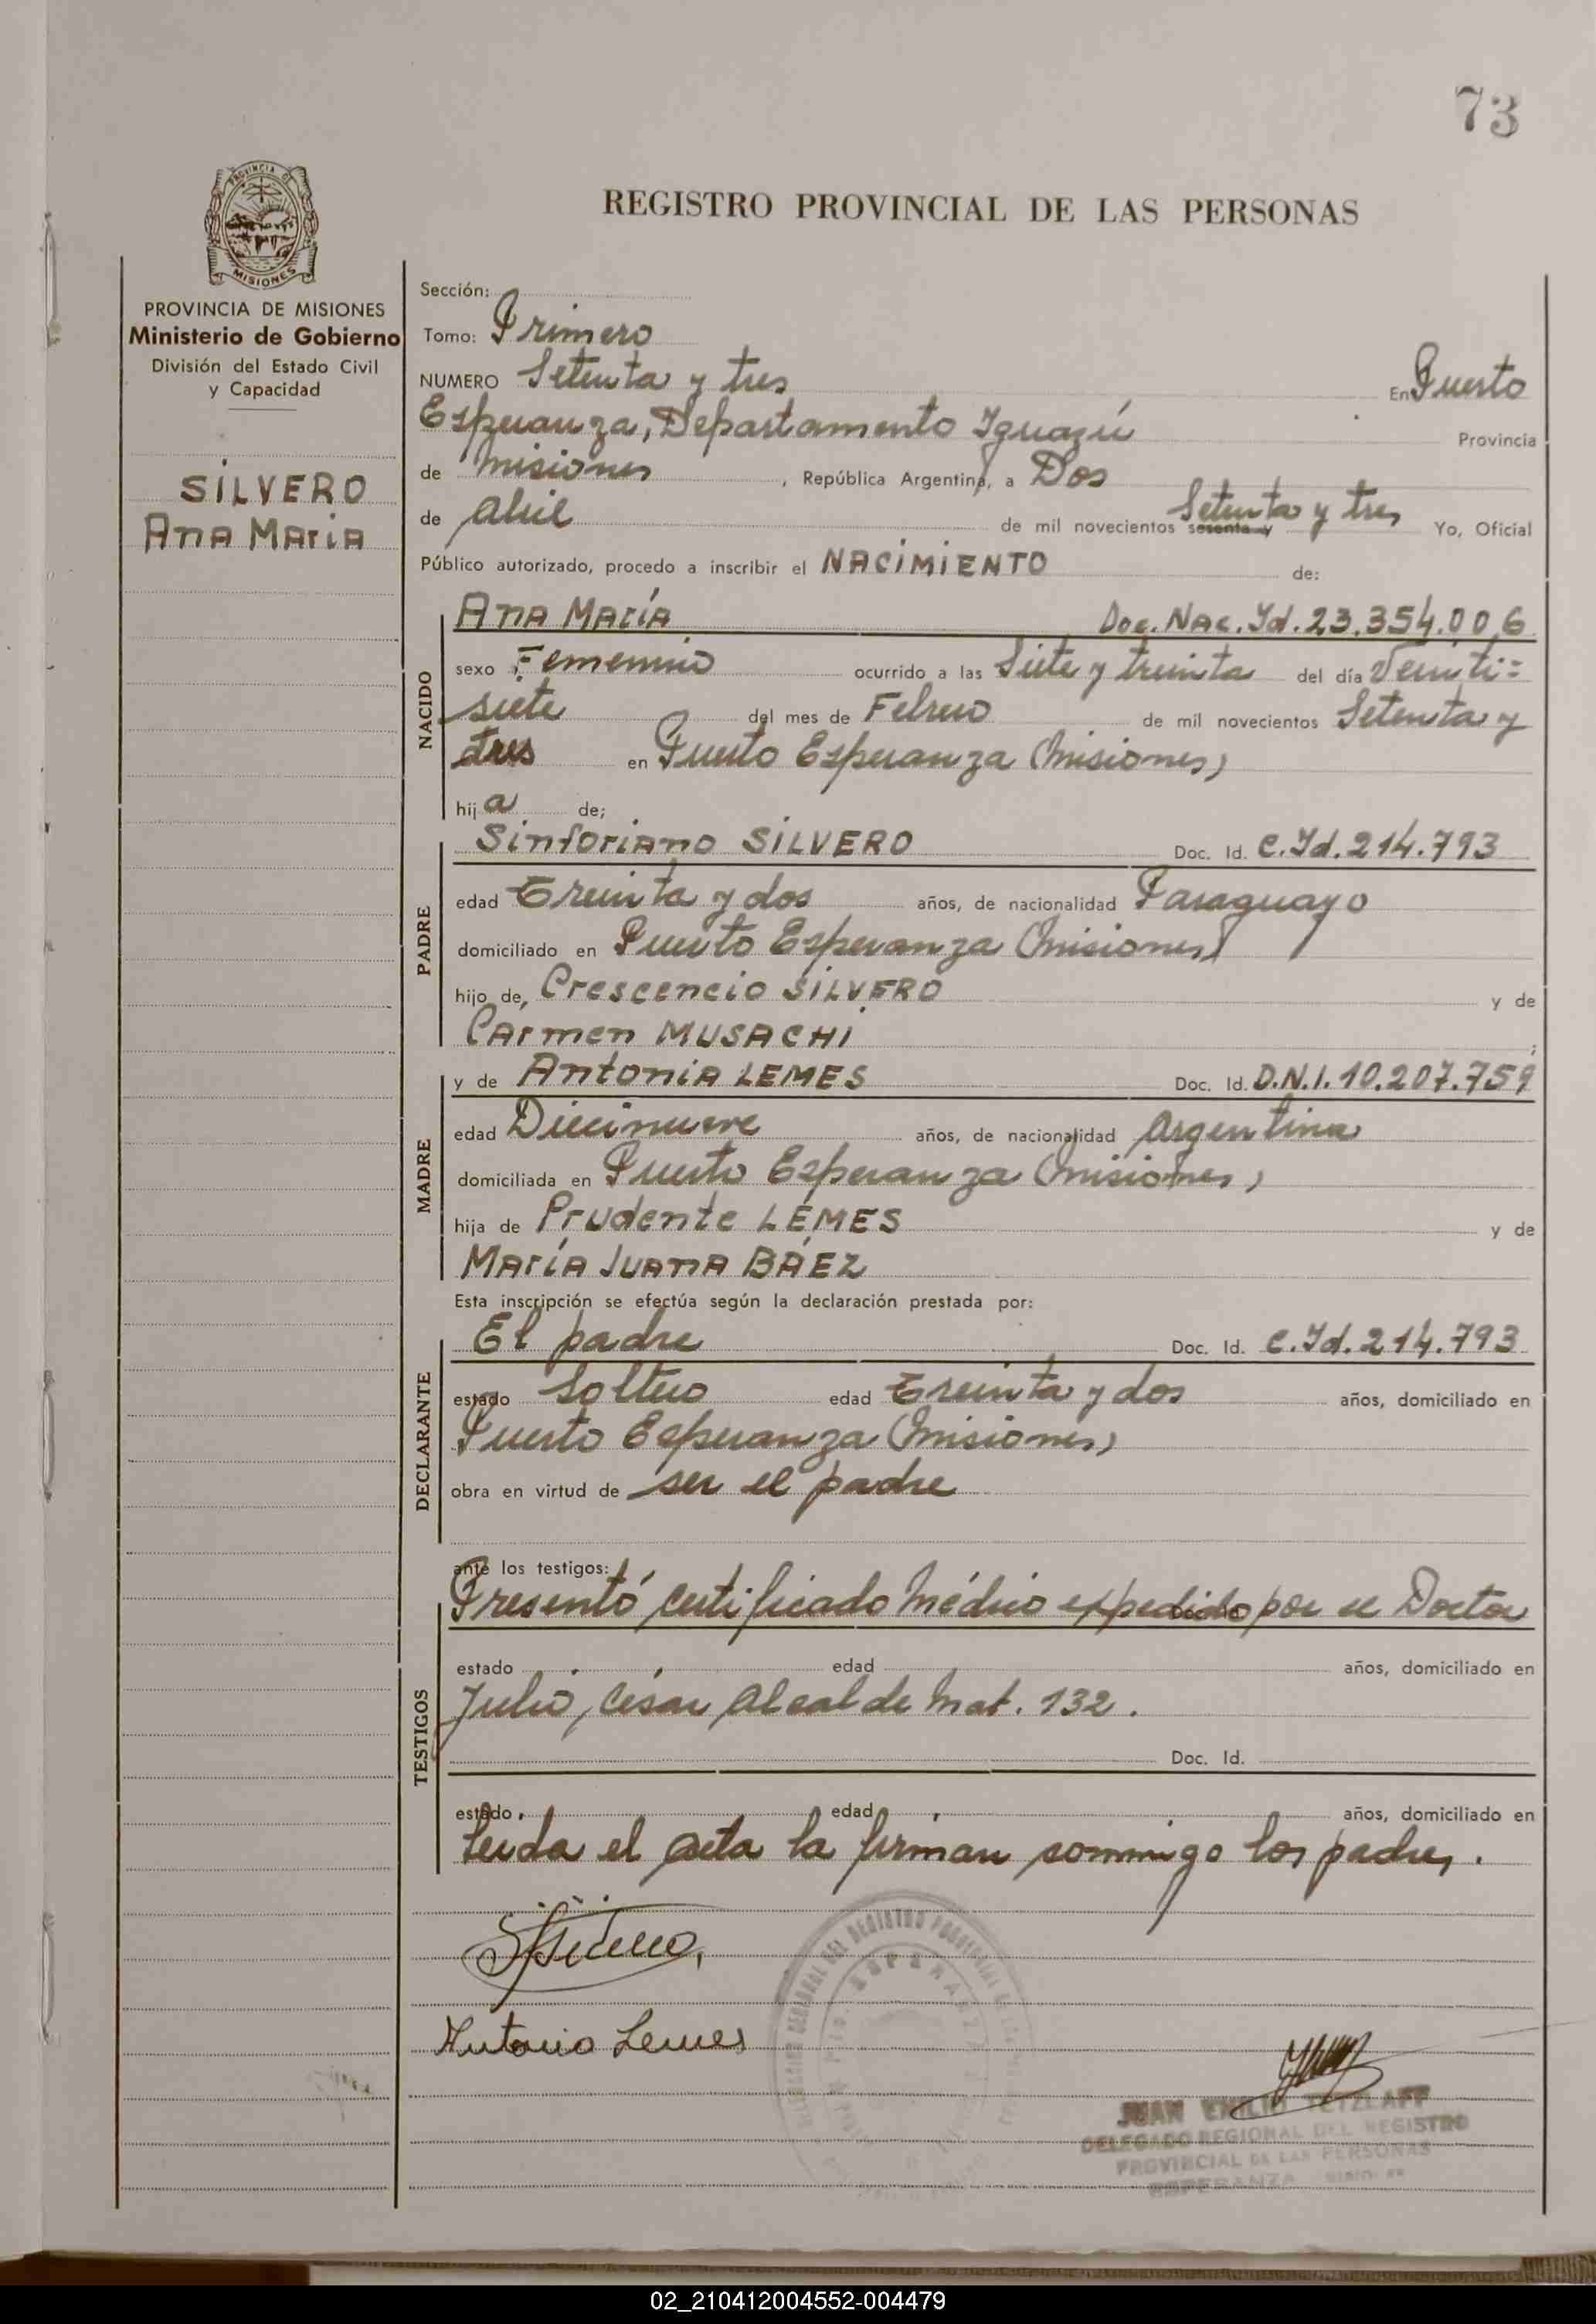 73
REGISTRO PROVINCIAL DE LAS PERSONAS
PROVINCIA DE
MISIONES
PROVINCIA DE MISIONES
Ministerio de Gobierno
División del Estado Civil
y Capacidad
SILVERO
Ana Maria
Sección:
Tomo: Primero
NUMERO Setenta y tres En Puerto
Esperanza, Departamento Iguazú Provincia
de Misiones, República Argentina, a Dos
de Abril de mil novecientos sesenta y Setenta y tres Yo, Oficial
Público autorizado, procedo a inscribir el NACIMIENTO de:
NACIDO
Ana María Doc. Nac. Id. 23.354.006
sexo Femenino ocurrido a las Siete y treinta del día Veinti=
siete del mes de Febrero de mil novecientos Setenta y
tres en Puerto Esperanza (Misiones)
hij a de;
PADRE
Sinforiano SILVERO Doc. Id. C.Id. 214.793
edad Treinta y dos años, de nacionalidad Paraguayo
domiciliado en Puerto Esperanza (Misiones)
hijo de, Crescencio SILVERO y de
Carmen MUSACHI ;
MADRE
y de Antonia LEMES Doc. Id. D.N.I. 10.207.759
edad Diecinueve años, de nacionalidad Argentina
domiciliada en Puerto Esperanza (Misiones)
hija de Prudente LEMES y de
María Juana BÁEZ
Esta inscripción se efectúa según la declaración prestada por:
DECLARANTE
El padre Doc. Id. C.Id. 214.793
estado Soltero edad Treinta y dos años, domiciliado en
Puerto Esperanza (Misiones)
obra en virtud de ser el padre
ante los testigos:
TESTIGOS
Presentó certificado Médico expedido por el Doctor
estado edad años, domiciliado en
Julio, César Alcalde Mat. 132.
Doc. Id.
estado edad años, domiciliado en
Leida el acta la firman conmigo los padres.
Antonia Lemes
JUAN EMILIO TETZLAFF
DELEGADO REGIONAL DEL REGISTRO
PROVINCIAL DE LAS PERSONAS
ESPERANZA
02_210412004552-004479